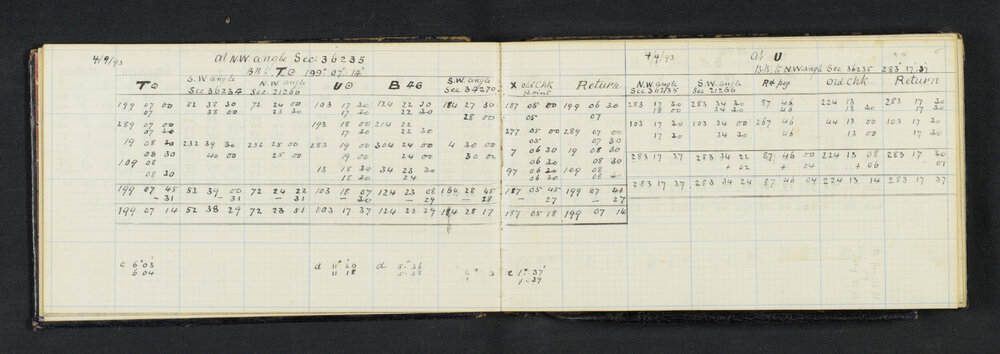 4/9/93 at N.W. angle Sec. 36235
B.B. to T⊙ 199° 07' 14"
T⊙ S.W. angle Sec 36234 N.W. angle Sec. 21266 U⊙ B 46 S.W. angle Sec 34270 X old Chk point Return
199 07 00 52 38 30 72 24 00 103 17 30 124 22 30 184 27 30 187 05 00 199 06 30
07 30 38 00 23 30 17 30 22 30 28 00 05 07
289 07 00 193 18 00 214 22 277 05 00 289 07 00
07 30 17 30 22 30 05 07 30
19 08 30 232 39 30 252 25 00 283 19 00 304 24 00 4 30 00 7 06 30 19 08 30
08 30 40 00 25 00 19 00 24 30 00 06 30 08 30
109 08 13 18 30 34 23 30 97 06 30 109 08
08 30 18 30 24 06 30 08
199 07 45 52 39 00 72 24 22 103 18 07 124 23 08 184 28 45 187 05 45 199 07 41
- 31 - 31 - 31 - 30 - 29 - 28 - 27 - 27
199 07 14 52 38 29 72 23 51 103 17 37 124 22 29 184 28 17 187 05 18 199 07 14
c 6° 03' d 11° d. 5° 36 c 1° 37'
6 04 11 18 1 37
4/9/93 at U
B.B. to N.W. angle Sec 36235 283° 17' 37
N.W. angle S.W. angle Sec 21266 Rd peg old Chk Return
283 17 30 283 34 30 87 46 224 13 283 17 30
18 00 34 46 13 30 17 30
103 17 30 103 34 00 267 46 44 13 00 103 17 30
17 30 34 30 46 13 00 17 30
283 17 37 283 34 22 87 46 00 224 13 08 283 17 30
+ 02 + 04 + 06 07
283 17 37 283 34 24 87 46 04 224 13 14 283 17 37